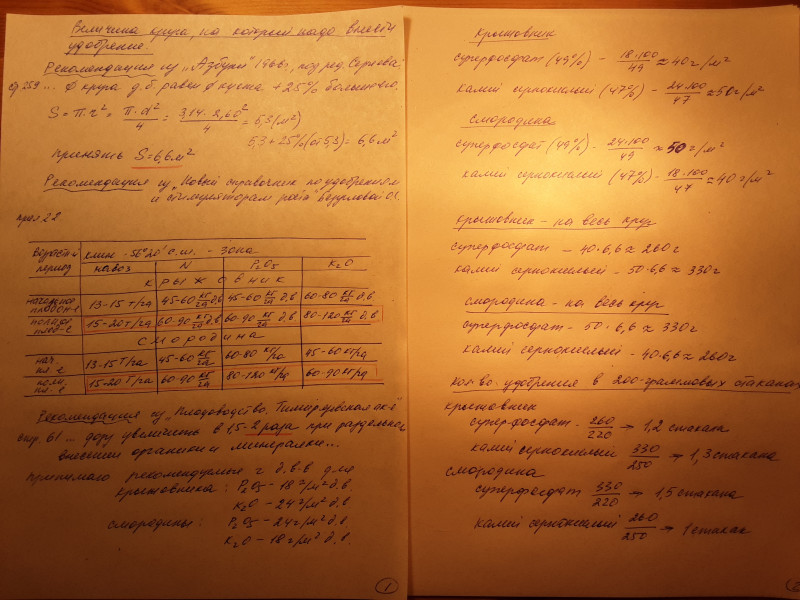 Величина круга, на который надо внести
удобрение.
Рекомендация из „Азбуки" 1966г, под ред. Сергеева
стр 259... ф круга д.б. равен ф куста + 25% большего.
S = π·r² = π·d²/4 = 3,14·2,60²/4 = 5,3 (м²)
5,3 + 25% (от 5,3) = 6,6 м²
принять S = 6,6 м²
Рекомендация из „Новый справочник по удобрениям
и стимуляторам роста"
прил 22
период 56°20' с.ш. - зона
навоз N P₂O₅ K₂O
Крыжовник
13-15 т/га 45-60 кг/га д.в 45-60 кг/га д.в 60-80 кг/га д.в.
15-20 т/га 60-90 кг/га д.в 60-90 кг/га д.в. 80-120 кг/га д.в.
Смородина
нач. пл-е 13-15 т/га 45-60 кг/га 60-80 кг/га 45-60 кг/га
полн. пл-е 15-20 т/га 60-90 кг/га 80-120 кг/га 60-90 кг/га
Рекомендация из „Плодоводство, Тимирязевская ак-я
стр. 61 ... дозу увеличить в 1,5-2 раза при раздельном
внесении органики и минералки...
г д.в-в для
крыжовника: P₂O₅ - 18 г/м² д.в.
K₂O - 24 г/м² д.в.
смородины: P₂O₅ - 24 г/м² д.в.
K₂O - 18 г/м² д.в.
1
Крыжовник
суперфосфат (49%) - 18·100/49 ≈ 40 г/м²
калий сернокислый (47%) - 24·100/47 ≈ 50 г/м²
Смородина
суперфосфат (49%) - 24·100/49 ≈ 50 г/м²
калий сернокислый (47%) - 18·100/47 ≈ 40 г/м²
Крыжовник - на весь круг
суперфосфат - 40·6,6 ≈ 260 г
калий сернокислый - 50·6,6 ≈ 330 г
Смородина - на весь круг
суперфосфат - 50·6,6 ≈ 330 г
калий сернокислый - 40·6,6 ≈ 260 г
Кол-во удобрения в 200-граммовых стаканах
крыжовник
суперфосфат - 260/220 → 1,2 стакана
калий сернокислый 330/250 → 1,3 стакана
смородина
суперфосфат 330/220 → 1,5 стакана
калий сернокислый 260/250 → 1 стакан